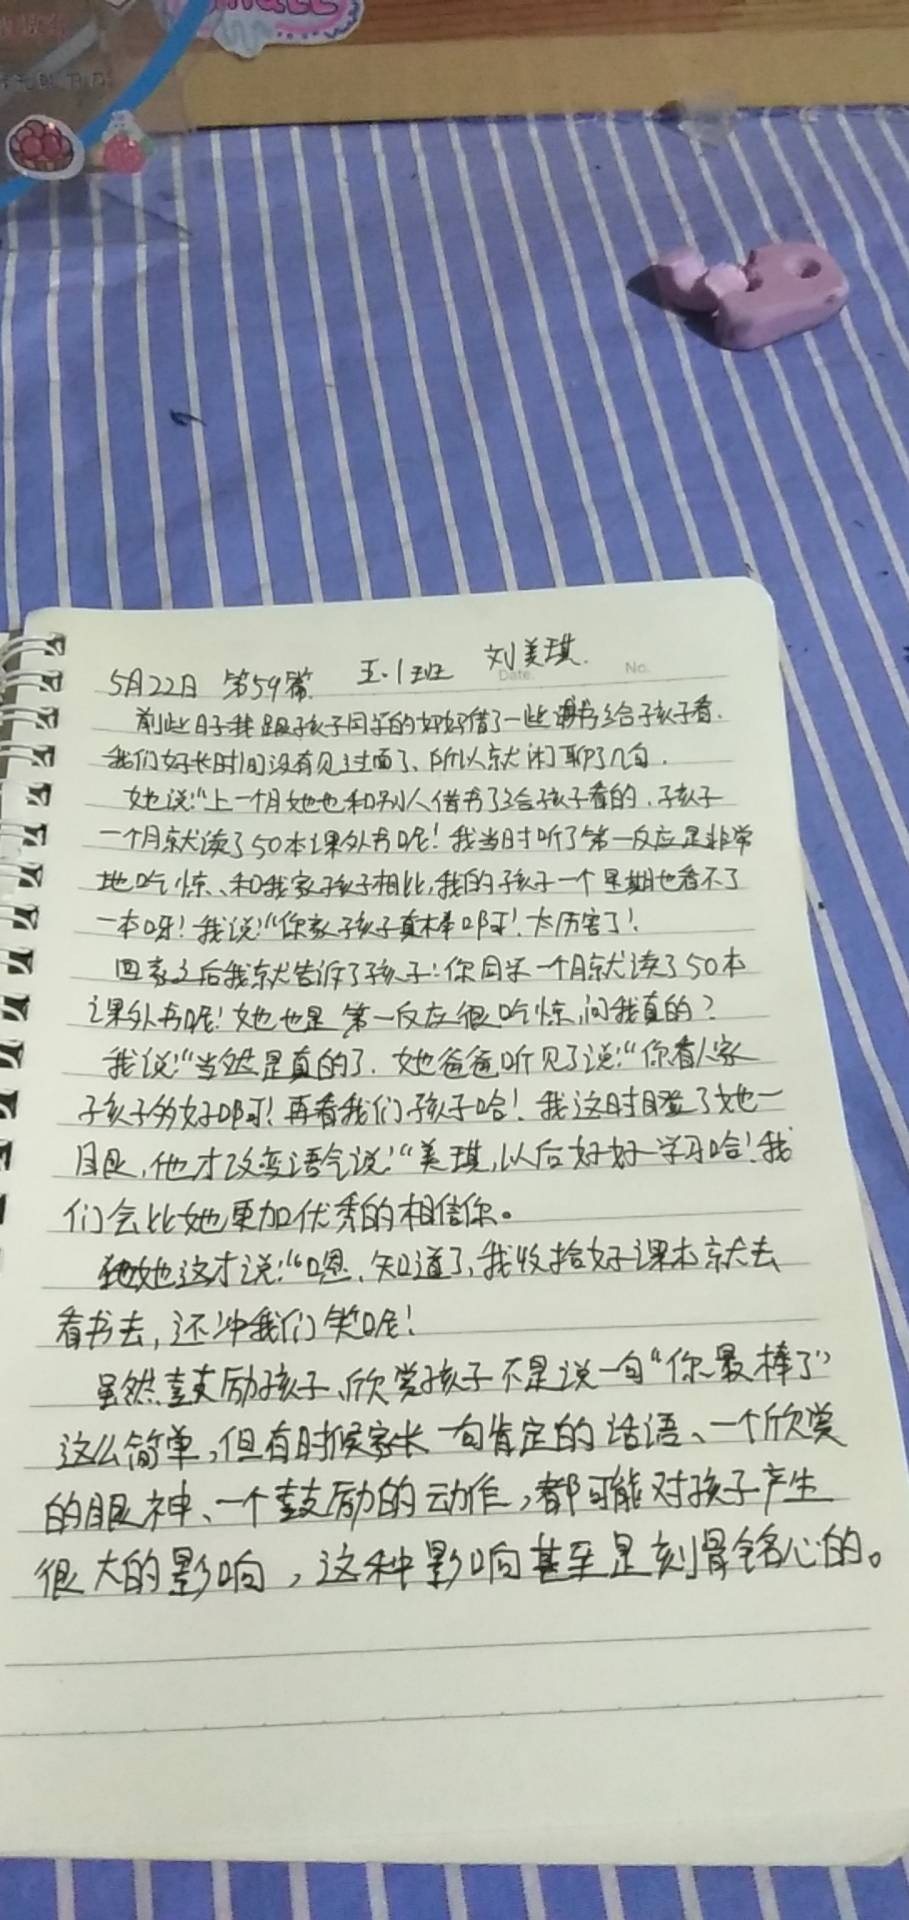 5月22日 第59篇. 五.1班 刘美琪.
Date. No.
前些日子我跟孩子同学的妈妈借了一些书给孩子看.
我们好长时间没有见过面了、所以就闲聊了几句.
她说:"上一个月她也和别人借书了给孩子看的.孩子
一个月就读了50本课外书呢!我当时听了第一反应是非常
地吃惊、和我家孩子相比,我的孩子一个星期也看不了
一本呀!我说:"你家孩子真棒啊!太厉害了!
回家之后我就告诉了孩子:你同学一个月就读了50本
课外书呢!她也是第一反应很吃惊,问我真的?
我说:"当然是真的了.她爸爸听见了说:"你看人家
孩子多好啊!再看我们孩子哈!我这时瞪了她一
眼,他才改变语气说:"美琪,以后好好学习哈!我
们会比她更加优秀的相信你。
她这才说:"嗯、知道了,我收拾好课本就去
看书去,还冲我们笑呢!
虽然鼓励孩子、欣赏孩子不是说一句"你最棒了"
这么简单,但有时候家长一句肯定的话语、一个欣赏
的眼神、一个鼓励的动作,都可能对孩子产生
很大的影响,这种影响甚至是刻骨铭心的。